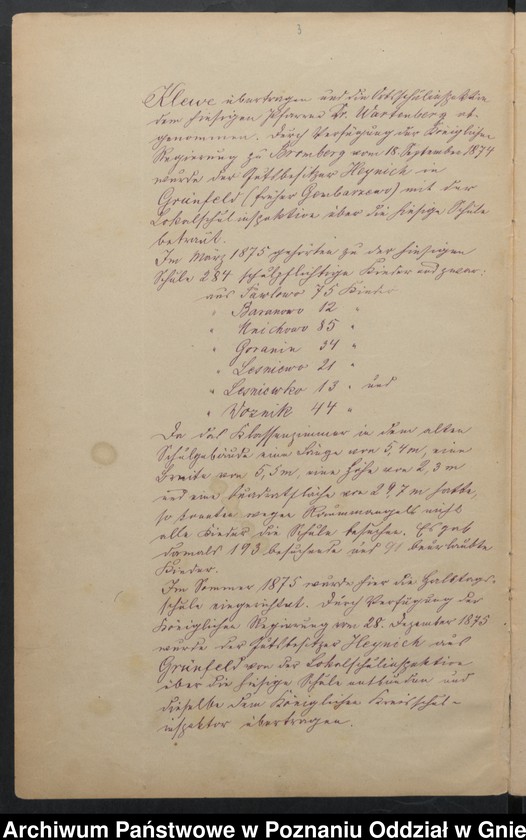 3
Klewe übertragen und die Ortsschulinspektion
dem hiesigen Pfarrer Dr. Wartenberg ab-
genommen. Durch Verfügung der Königlichen
Regierung zu Bromberg vom 18. September 1874
wurde der Gutsbesitzer Heynich in
Grünfeld (früher Gembarzewo) mit der
Lokalschulinspektion über die hiesige Schule
betraut.
Im März 1875 gehörten zu der hiesigen
Schule 284 schulpflichtige Kinder und zwar:
aus Pawlowo 75 Kinder
" Baranowo 12 "
" Mnichowo 85 "
" Goranin 34 "
" Lesniewo 21 "
" Lesniewko 13 " und
" Woznik 44 "
Da das Klassenzimmer in dem alten
Schulgebäude eine Länge von 5,4 m, eine
Breite von 5,5 m, eine Höhe von 2,3 m
und eine Quadratfläche von 29,7 m hatte,
so konnten wegen Raummangels nicht
alle Kinder die Schule besuchen. Es gab
damals 193 besuchende und 91 beurlaubte
Kinder.
Im Sommer 1875 wurde hier die Halbtags-
schule eingerichtet. Durch Verfügung der
Königlichen Regierung vom 28. Dezember 1875
wurde der Gutsbesitzer Heynich aus
Grünfeld von der Lokalschulinspektion
über die hiesige Schule entbunden und
dieselbe dem Königlichen Kreisschul-
inspektor übertragen.
Archiwum Państwowe w Poznaniu Oddział w Gnie